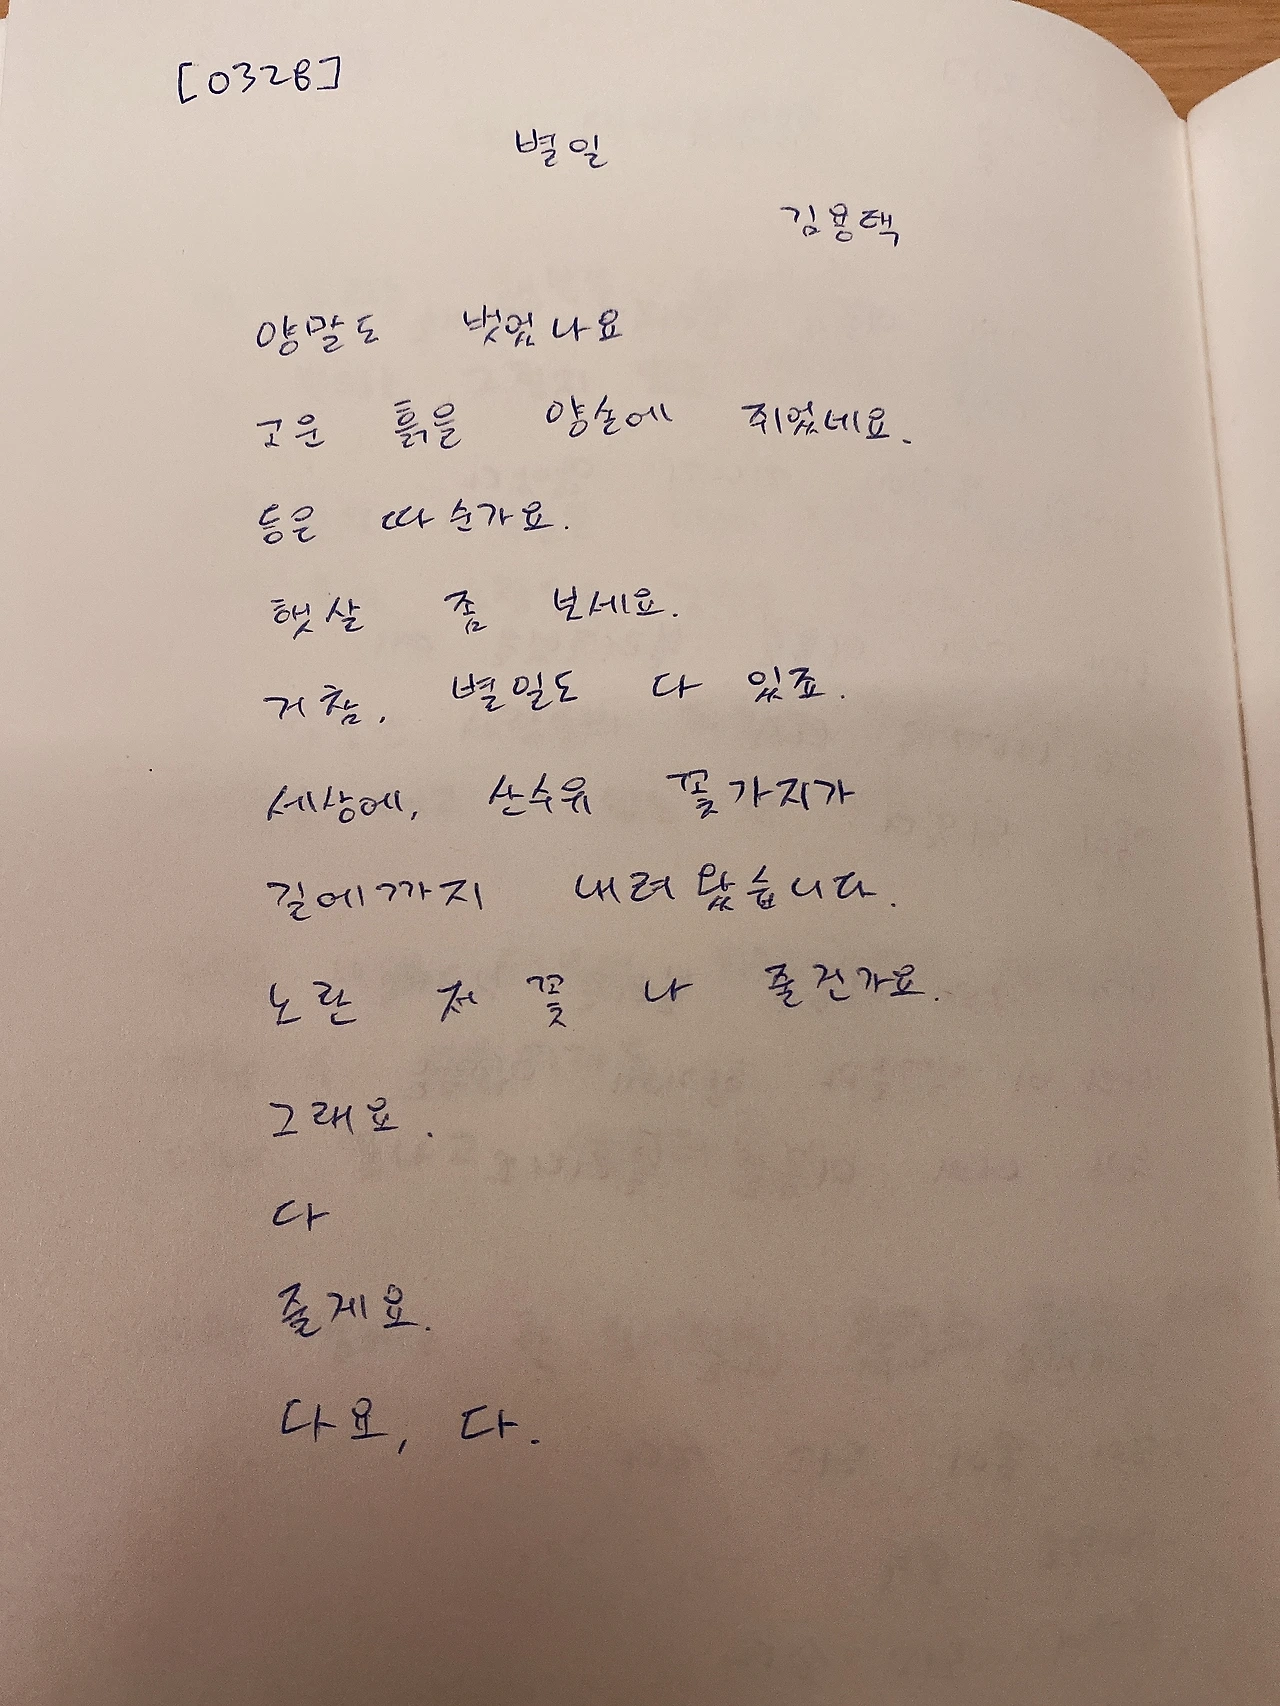 [0328]
별일
김용택
양말도 벗었나요
고운 흙을 양손에 쥐었네요.
등은 따순가요.
햇살 좀 보세요.
거참, 별일도 다 있죠.
세상에, 산수유 꽃가지가
길에까지 내려왔습니다.
노란 저 꽃 나 줄건가요.
그래요.
다
줄게요.
다요, 다.